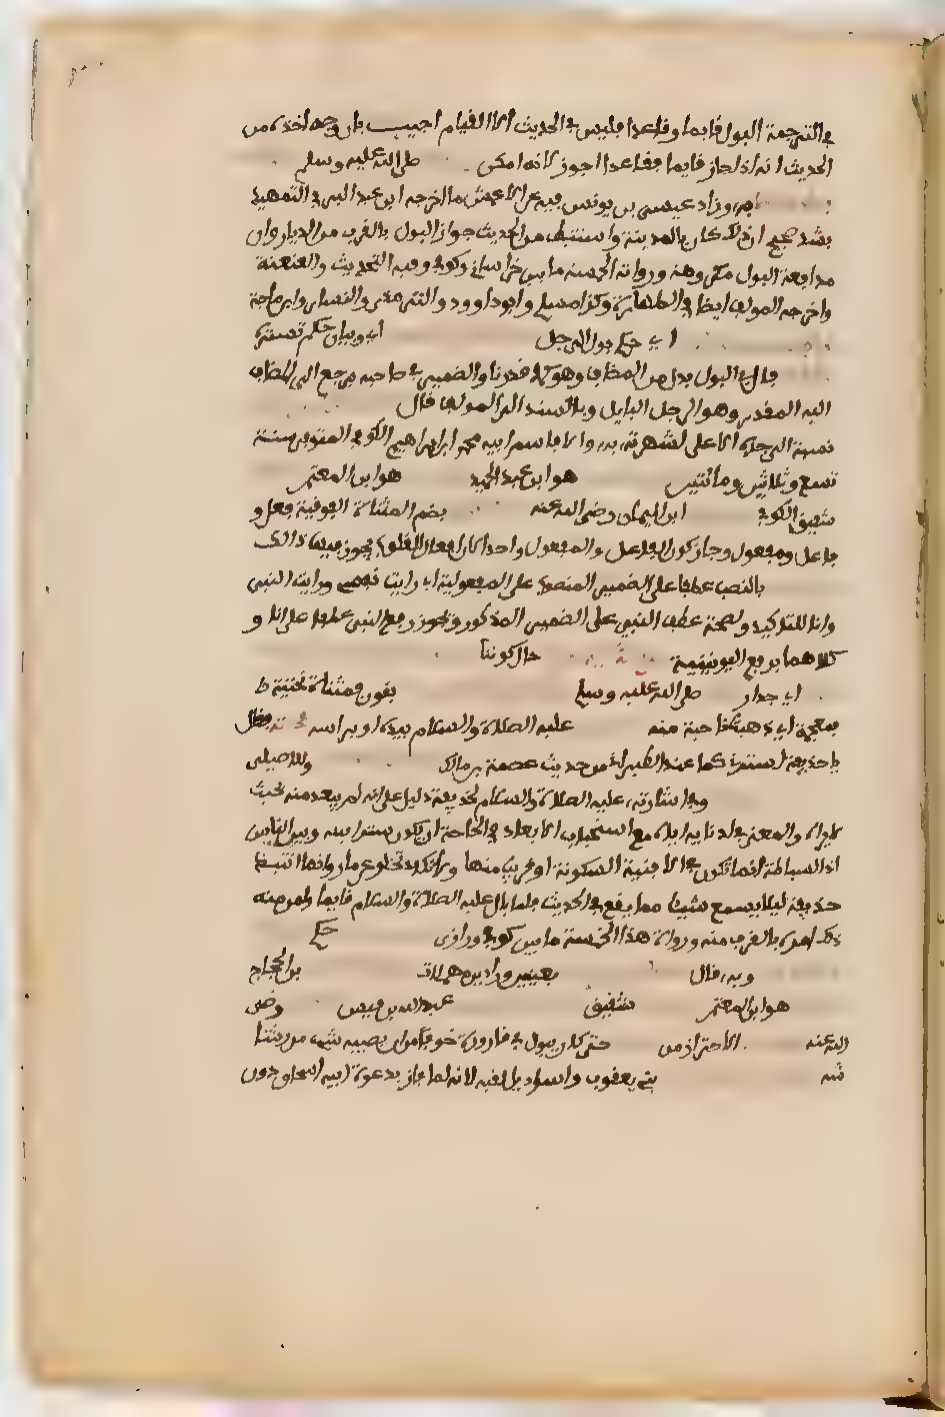 في الترجمة البول قايما وقاعدا فليس في الحديث الا القيام اجيب بان وجه اخذه من
الحديث انه اذا جاز قايما فقاعدا اجوز لانه امكن صلى الله عليه وسلم
وزاد عيسى بن يونس فيه عن الاعمش مما اخرجه ابن عبد البر في التمهيد
بسند صحيح ان ذلك كان بالمدينة واستنبط من الحديث جواز البول بالقرب من الديار وان
مدافعة البول مكروهة ورواته الخمسة ما بين خراساني وكوفي وفيه التحديث والعنعنة
واخرجه المولف ايضا في الطهارة وكذا مسلم وابو داوود والترمذي والنساءي وابن ماجة
اي حكم بول الرجل اي وبيان حكم تستره
فال في البول بدل من المضاف وهو كما قدرنا والضمير في صاحبه يرجع الى المضاف
اليه المقدر وهو الرجل البايل وبالسند الى المولف قال
نسبة الى جده الاعلى لشهرته به والا فاسم ابيه محمد بن ابراهيم الكوفي المتوفى سنة
تسع وثلاثين ومائتين هو ابن عبد الحميد هو ابن المعتمر
شقيق الكوفي ابن اليمان رضي الله عنه بضم المثناة الفوقية فعل و
فاعل ومفعول وجاز كون الفاعل والمفعول واحدا لان افعال القلوب يجوز فيها ذالك
بالنصب عطفا على الضمير المنصوب على المفعولية اي رايت نفسي ورايت النبي
وانا للتاكيد ولصحة عطف النبي على الضمير المذكور ويجوز رفع النبي عطفا على انا و
كلاهما بفرع اليونينية حال كوننا
اي جدار صلى الله عليه وسلم بنون فمثناة تحتية
فمعجمة اي ذهبت ناحية منه عليه الصلاة والسلام بيده او براسه فقال
يا حذيفة استرني كما عند الطبراني من حديث عصمة بن مالك وللاصيلي
وفي اشارته عليه الصلاة والسلام لحذيفة دليل على انه لم يبعد منه بحيث
لا يراه والمعنى في ادنايه اياه مع استحباب الابعاد في الحاجة ان يكون سترا بينه وبين الناس
اذ السباطة انما تكون في الافنية المسكونة او قريبا منها ولا تكاد تخلو عن مار وانما انتبذ
حذيفة ليلا يسمع شيئا مما يقع في الحديث فلما بال عليه الصلاة والسلام قايما وامن منه
ذلك امره بالقرب منه ورواة هذا الخمسة ما بين كوفي ورازي حكم
وبه قال بعينين وراين مهملات بن الحجاج
هو ابن المعتمر شقيق عبد الله بن قيس رضي
الله عنه الاحتراز من حتى كان يبول في قارورة خوفا من ان يصيبه شيء من رشا
شه بني يعقوب واسراءيل لقبه لانه لما فاز بدعوة ابيه اسحاق دون